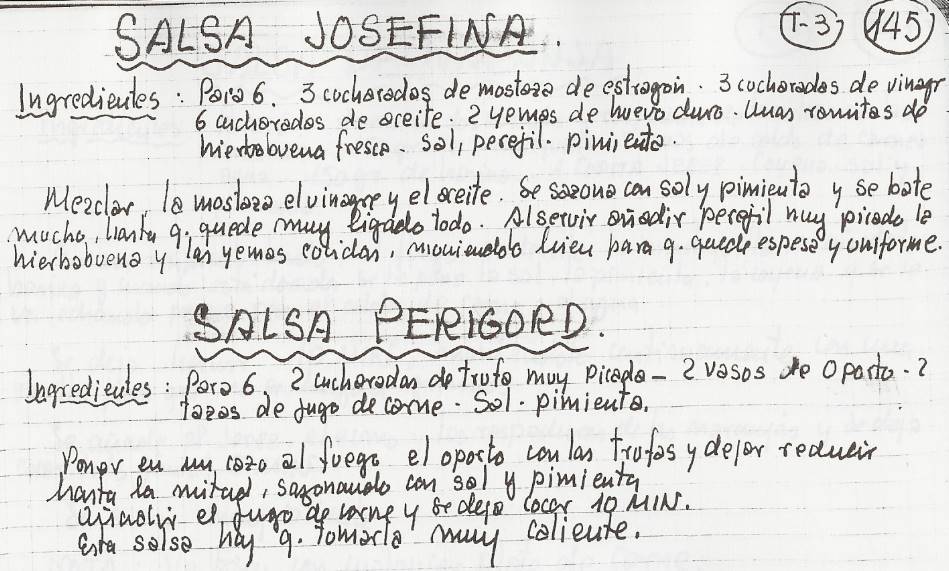 SALSA JOSEFINA. T-3 145
Ingredientes: Para 6. 3 cucharadas de mostaza de estragón. 3 cucharadas de vinagr
6 cucharadas de aceite. 2 yemas de huevo duro. Unas ramitas de
hierbabuena fresca. Sal, perejil. pimienta
Mezclar, la mostaza el vinagre y el aceite. Se sazona con sal y pimienta y se bate
mucho, hasta q. quede muy ligado todo. Al servir añadir perejil muy picado la
hierbabuena y las yemas cocidas, moviendolo bien para q. quede espesa y uniforme.
SALSA PERIGORD.
Ingredientes: Para 6. 2 cucharadas de trufa muy picada - 2 vasos de oporto. 2
tazas de jugo de carne. Sal. pimienta.
Poner en un cazo al fuego el oporto con las trufas y dejar reducir
hasta la mitad, sazonando con sal y pimienta
añadir el jugo de carne y se deja cocer 10 MIN.
Esta salsa hay q. tomarla muy caliente.